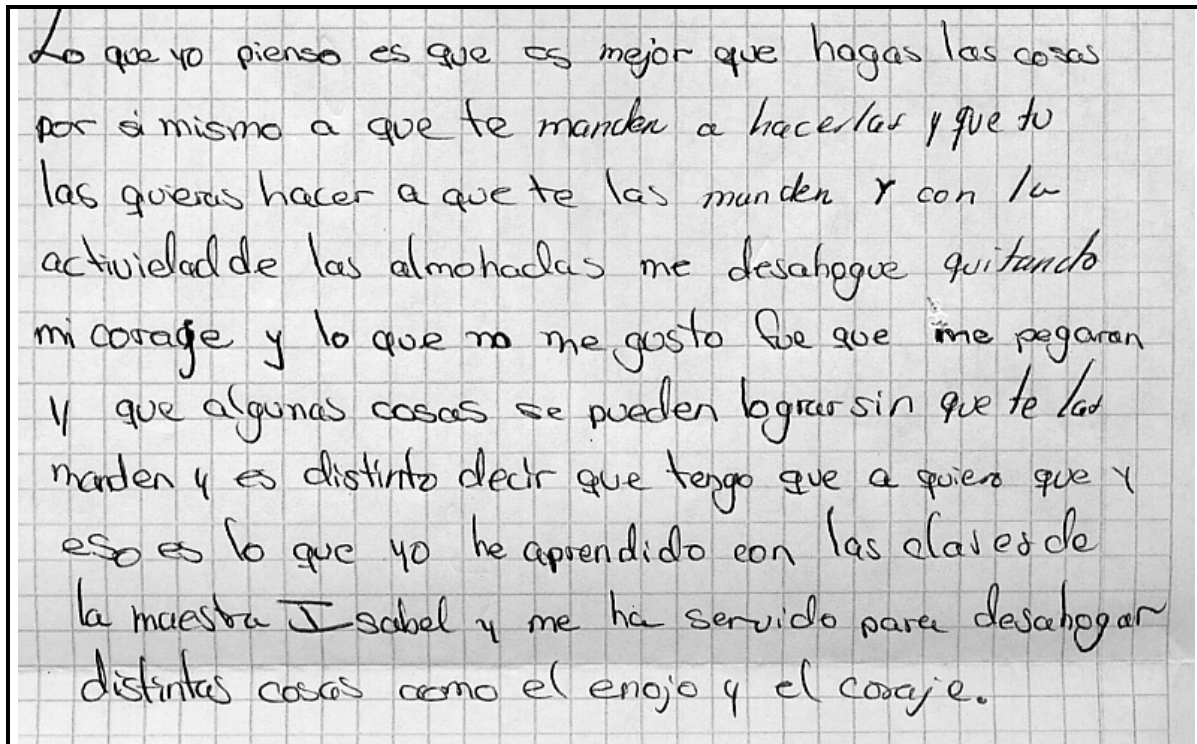 Lo que yo pienso es que es mejor que hagas las cosas
por si mismo a que te manden a hacerlas y que tu
las quieras hacer a que te las manden y con la
actividad de las almohadas me desahogue quitando
mi corage y lo que no me gusto fue que me pegaran
y que algunas cosas se pueden lograr sin que te las
manden y es distinto decir que tengo que a quiero que y
eso es lo que yo he aprendido con las clases de
la maestra Isabel y me ha servido para desahogar
distintas cosas como el enojo y el coraje.